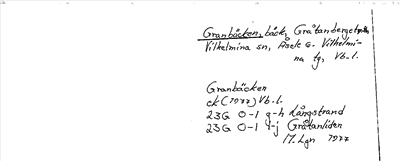 Granbäcken, bäck, Gråtanberget
Vilhelmina sn, Åsele o. Vilhelmi-
na tg, Vb.l.
Granbäcken
ek (1977) Vb.l.
23G 0-1 g-h Långstrand
23G 0-1 i-j Gråtanliden
M. Lgn 1977